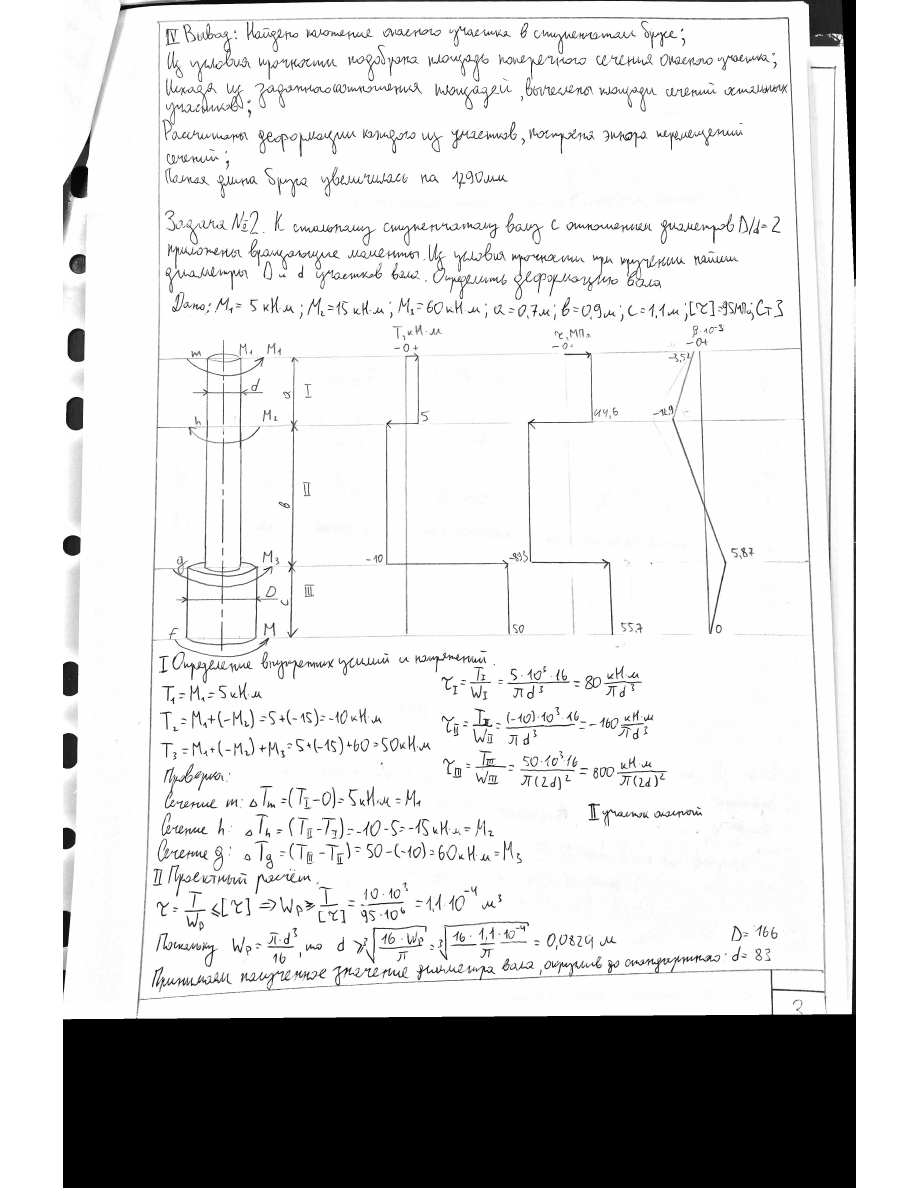 IV Вывод: Найдено положение опасного участка в ступенчатом брусе;
Из условия прочности подобрана площадь поперечного сечения опасного участка;
Исходя из заданного соотношения площадей, вычислены площади сечений остальных
участков;
Рассчитаны деформации каждого из участков, построена эпюра перемещений
сечений;
Полная длина бруса увеличилась на 1,290мм
Задача №2. К стальному ступенчатому валу с отношением диаметров D/d=2
приложены вращающие моменты. Из условия прочности при кручении найти
диаметры D и d участков вала. Определить деформацию вала
Дано: M₁= 5кН·м; M₂=15кН·м; M₃=60кН·м; a=0,7м; b=0,9м; c=1,1м; [τ]=95МПа; Ст3
T, кН·м
- 0 +
τ, МПа
- 0 +
β·10⁻³
- 0 +
m M₁ M₁
-3,52
d a I
h M₂
5
44,6
-12,9
b II
g M₃
-10
-89,3
5,87
D c III
F M
50
55,7
0
I Определение внутренних усилий и напряжений.
T₁=M₁=5кН·м
T₂=M₁+(-M₂)=5+(-15)=-10кН·м
T₃=M₁+(-M₂)+M₃=5+(-15)+60=50кН·м
τ_I = T_I/W_I = 5·10³·16/πd³ = 80 кН·м/πd³
τ_II = T_II/W_II = (-10)·10³·16/πd³ = -160 кН·м/πd³
τ_III = T_III/W_III = 50·10³·16/π(2d)² = 800 кН·м/π(2d)²
Проверка:
Сечение m: ΔTm=(T_I-0)=5кН·м=M₁
II участок опасный
Сечение h: ΔTh=(T_II-T_I)=-10-5=-15кН·м=M₂
Сечение g: ΔTg=(T_III-T_II)=50-(-10)=60кН·м=M₃
II Проектный расчёт.
τ = T/Wp ≤[τ] ⇒ Wp ≥ T/[τ] = 10·10³/95·10⁶ = 1,1·10⁻⁴ м³
Поскольку Wp = π·d³/16, то d ≥ ³√(16·Wp/π) = ³√(16·1,1·10⁻⁴/π) = 0,0824 м D=166
Принимаем полученное значение диаметра вала, округлив до стандартного: d=83
3